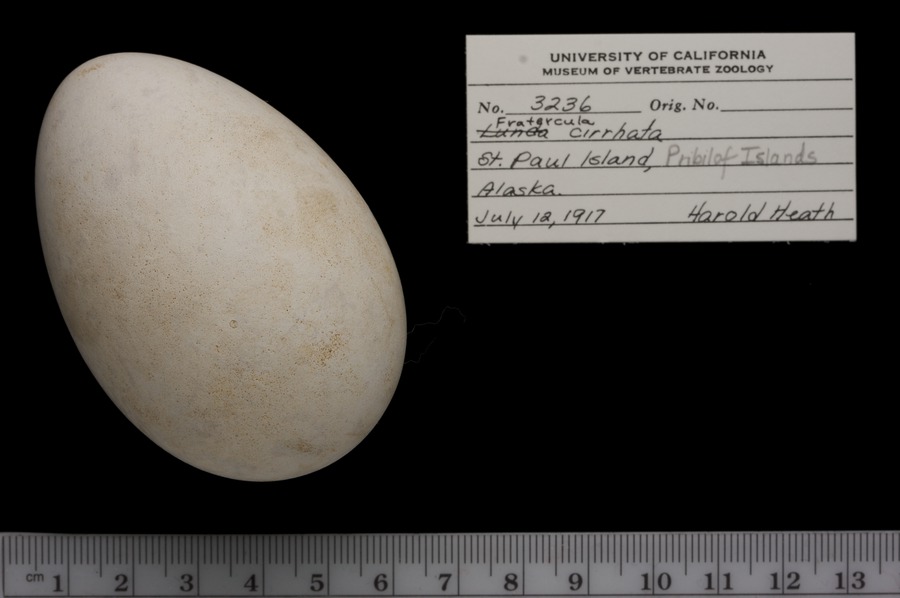 UNIVERSITY OF CALIFORNIA
MUSEUM OF VERTEBRATE ZOOLOGY
No. 3236 Orig. No.
Fratercula
Lunda cirrhata
St. Paul Island, Pribilof Islands
Alaska.
July 12, 1917 Harold Heath
cm 1 2 3 4 5 6 7 8 9 10 11 12 13